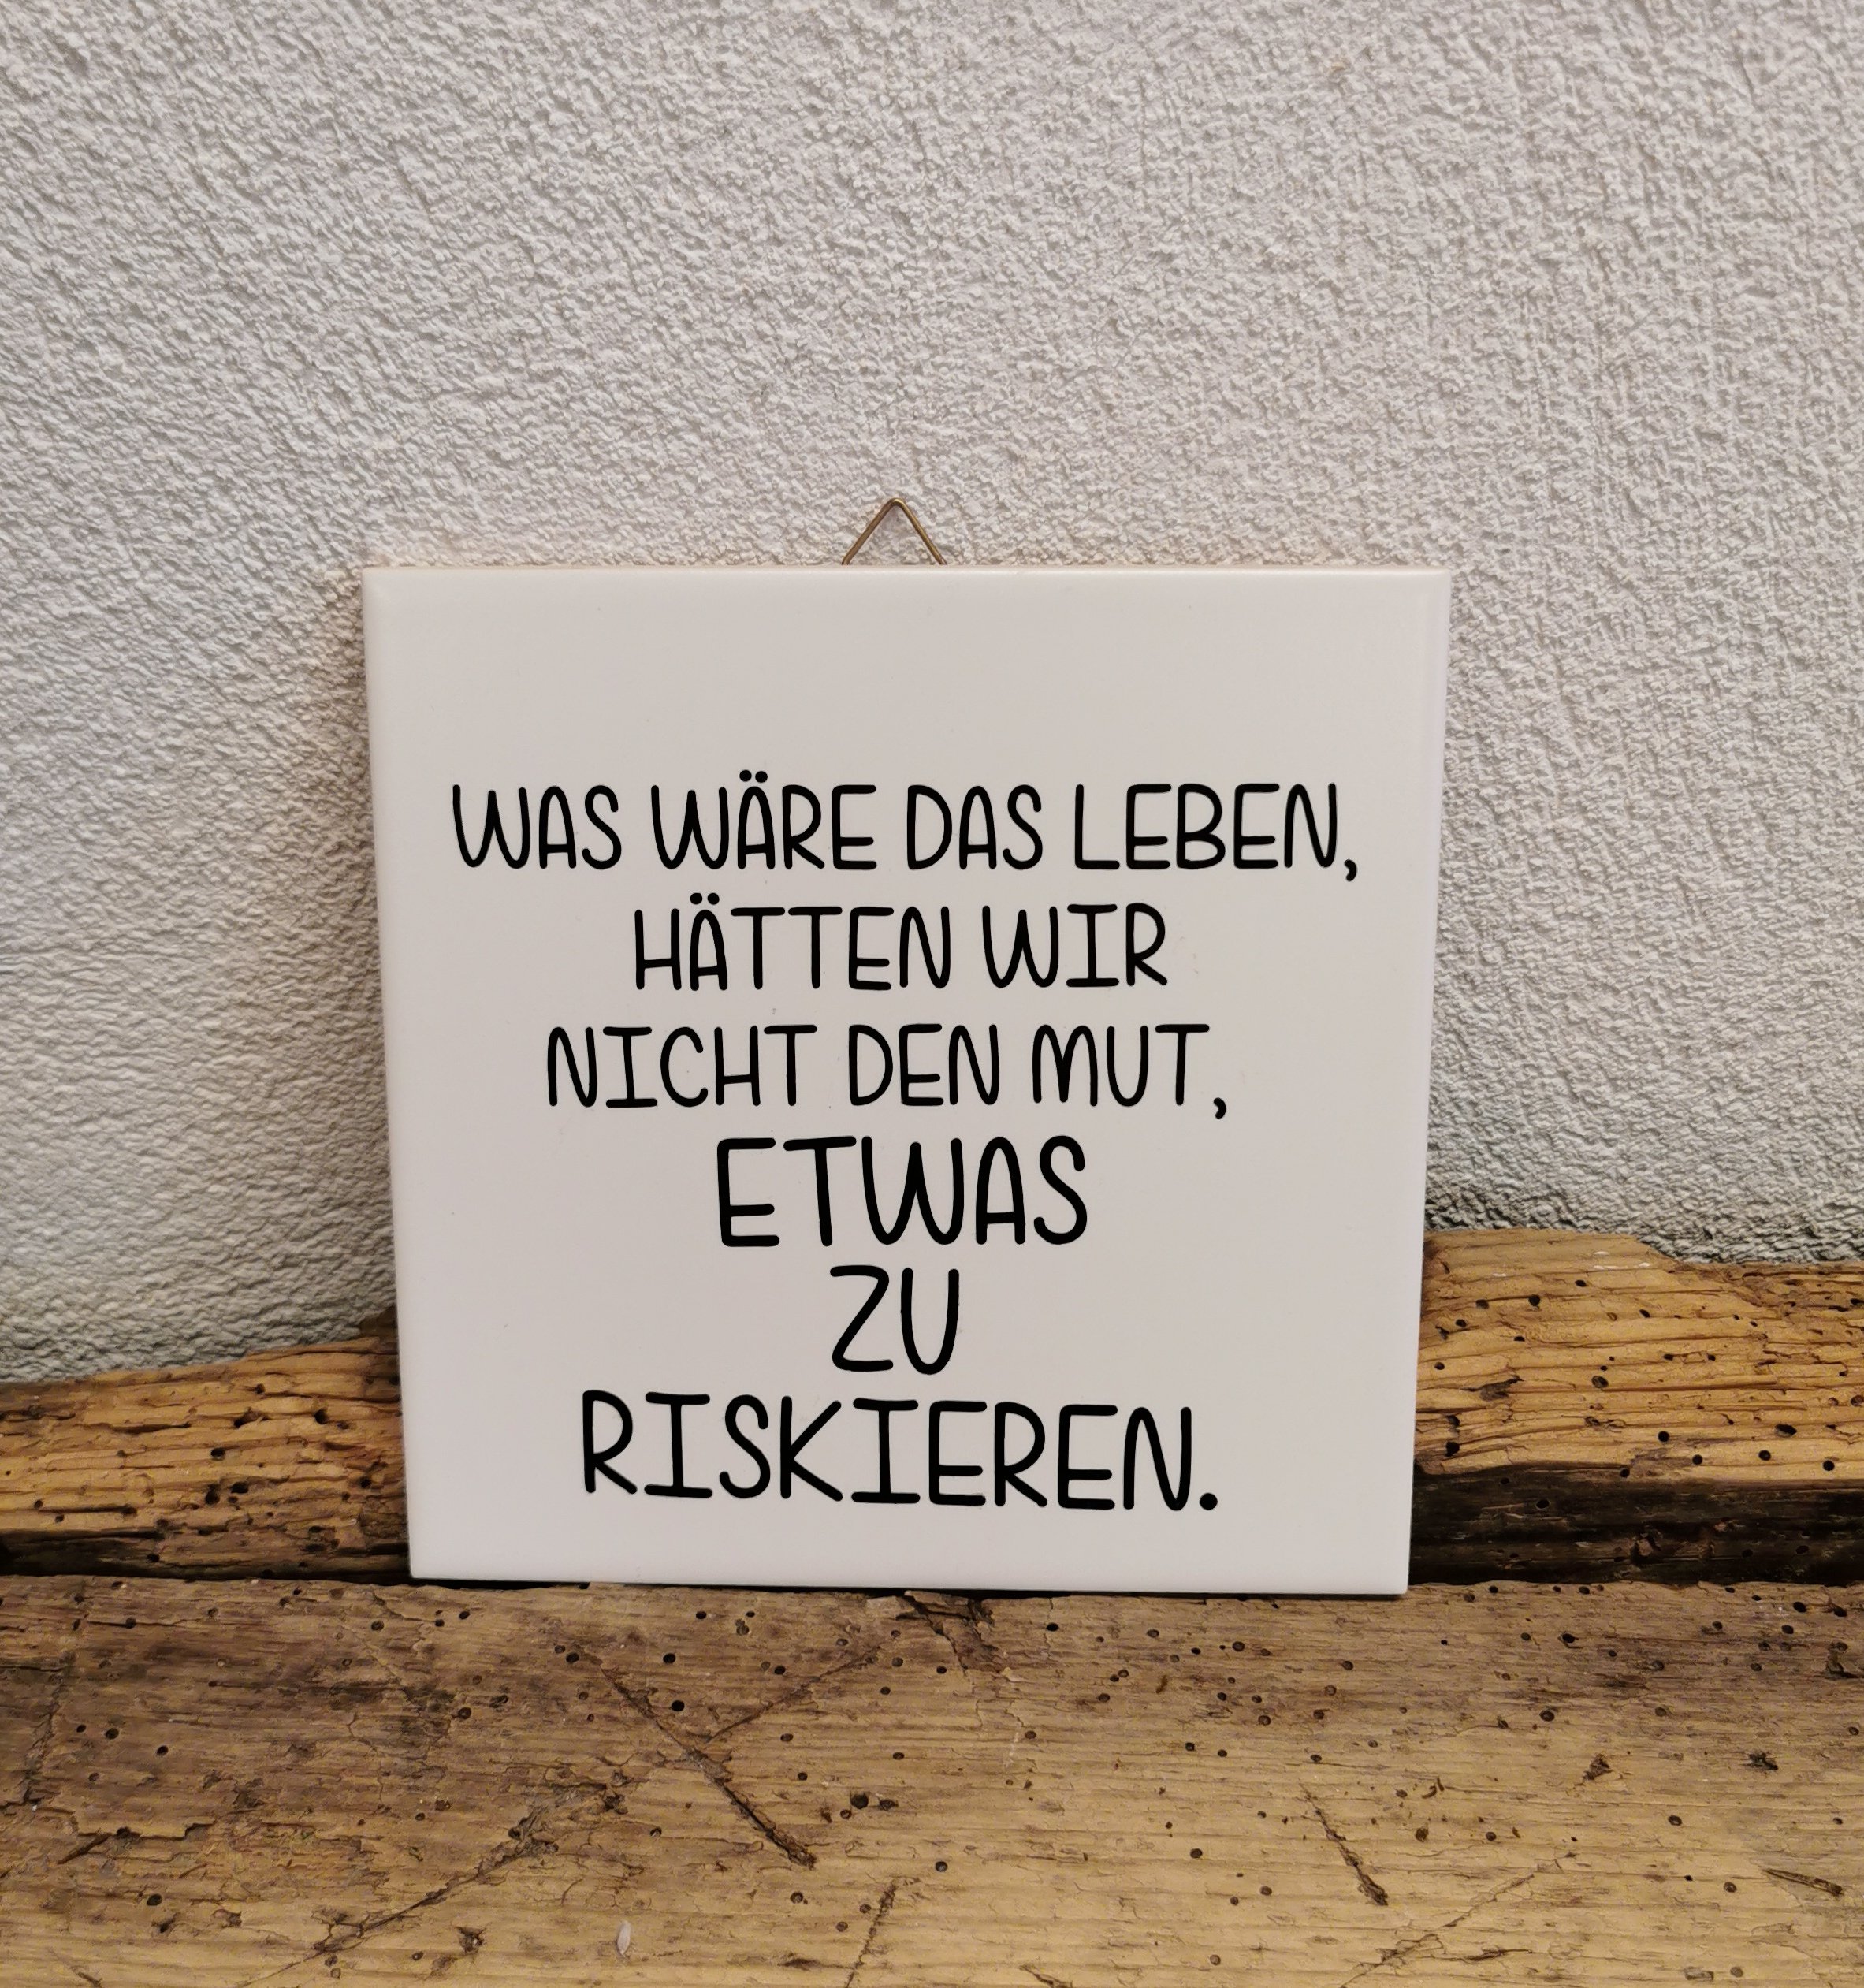 WAS WÄRE DAS LEBEN,
HÄTTEN WIR
NICHT DEN MUT,
ETWAS
ZU
RISKIEREN.